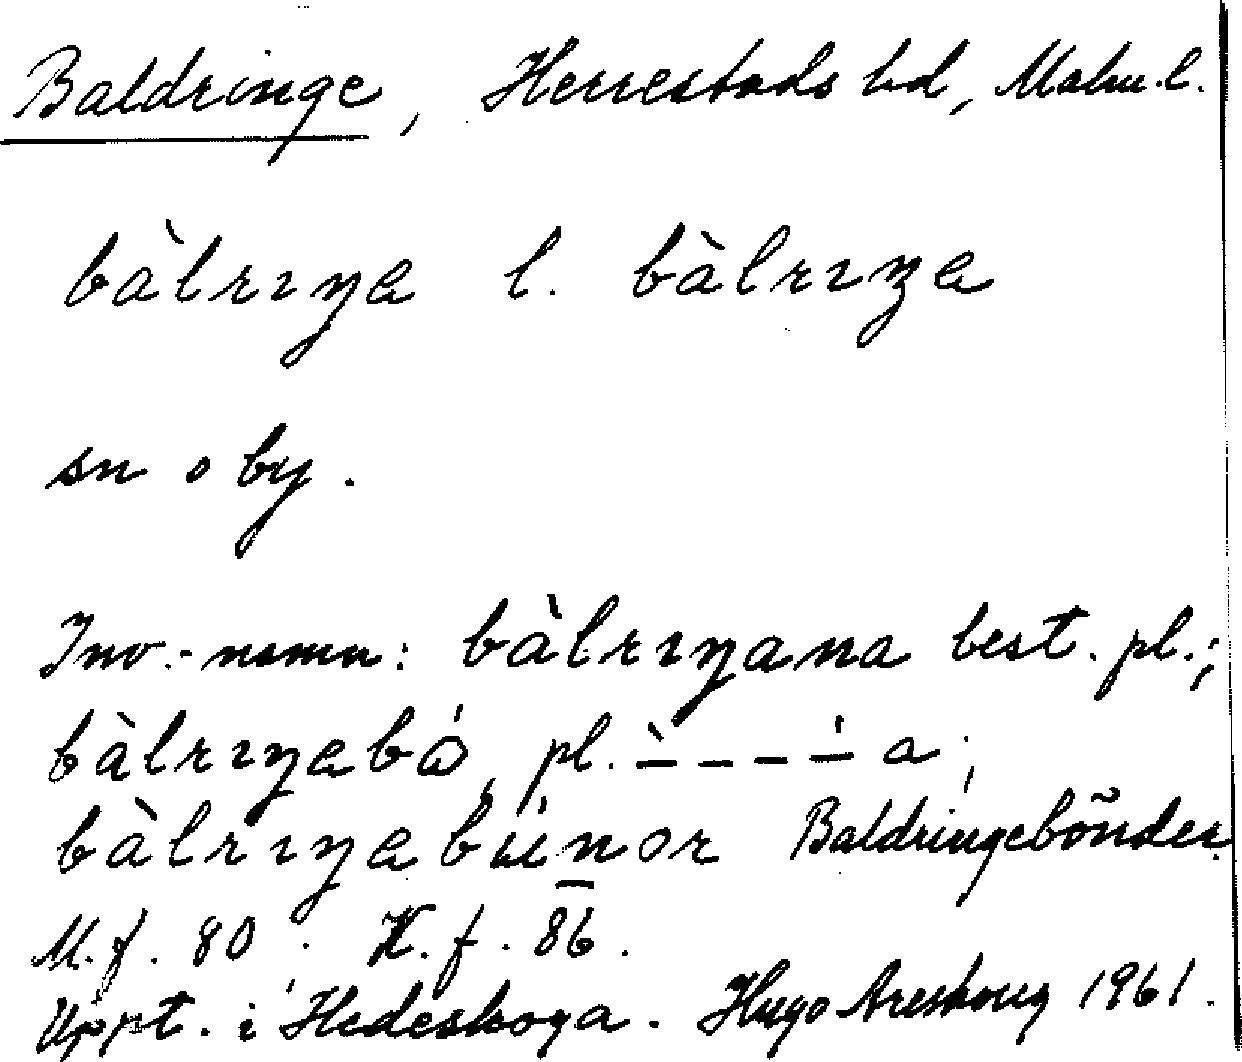 Baldringe, Herrestads hd, Malm. l.
bàlrıŋa l. bàlrıŋa
sn o by.
Inv.-namn: bàlrıŋana best. pl.;
bàlrıŋabó, pl. ̀– – – ́– a;
bàlrıŋabúnor Baldringebönder
M.f. 80. K.f. 86.
Uppt. i Hedeskoga. Hugo Areskoug 1961.